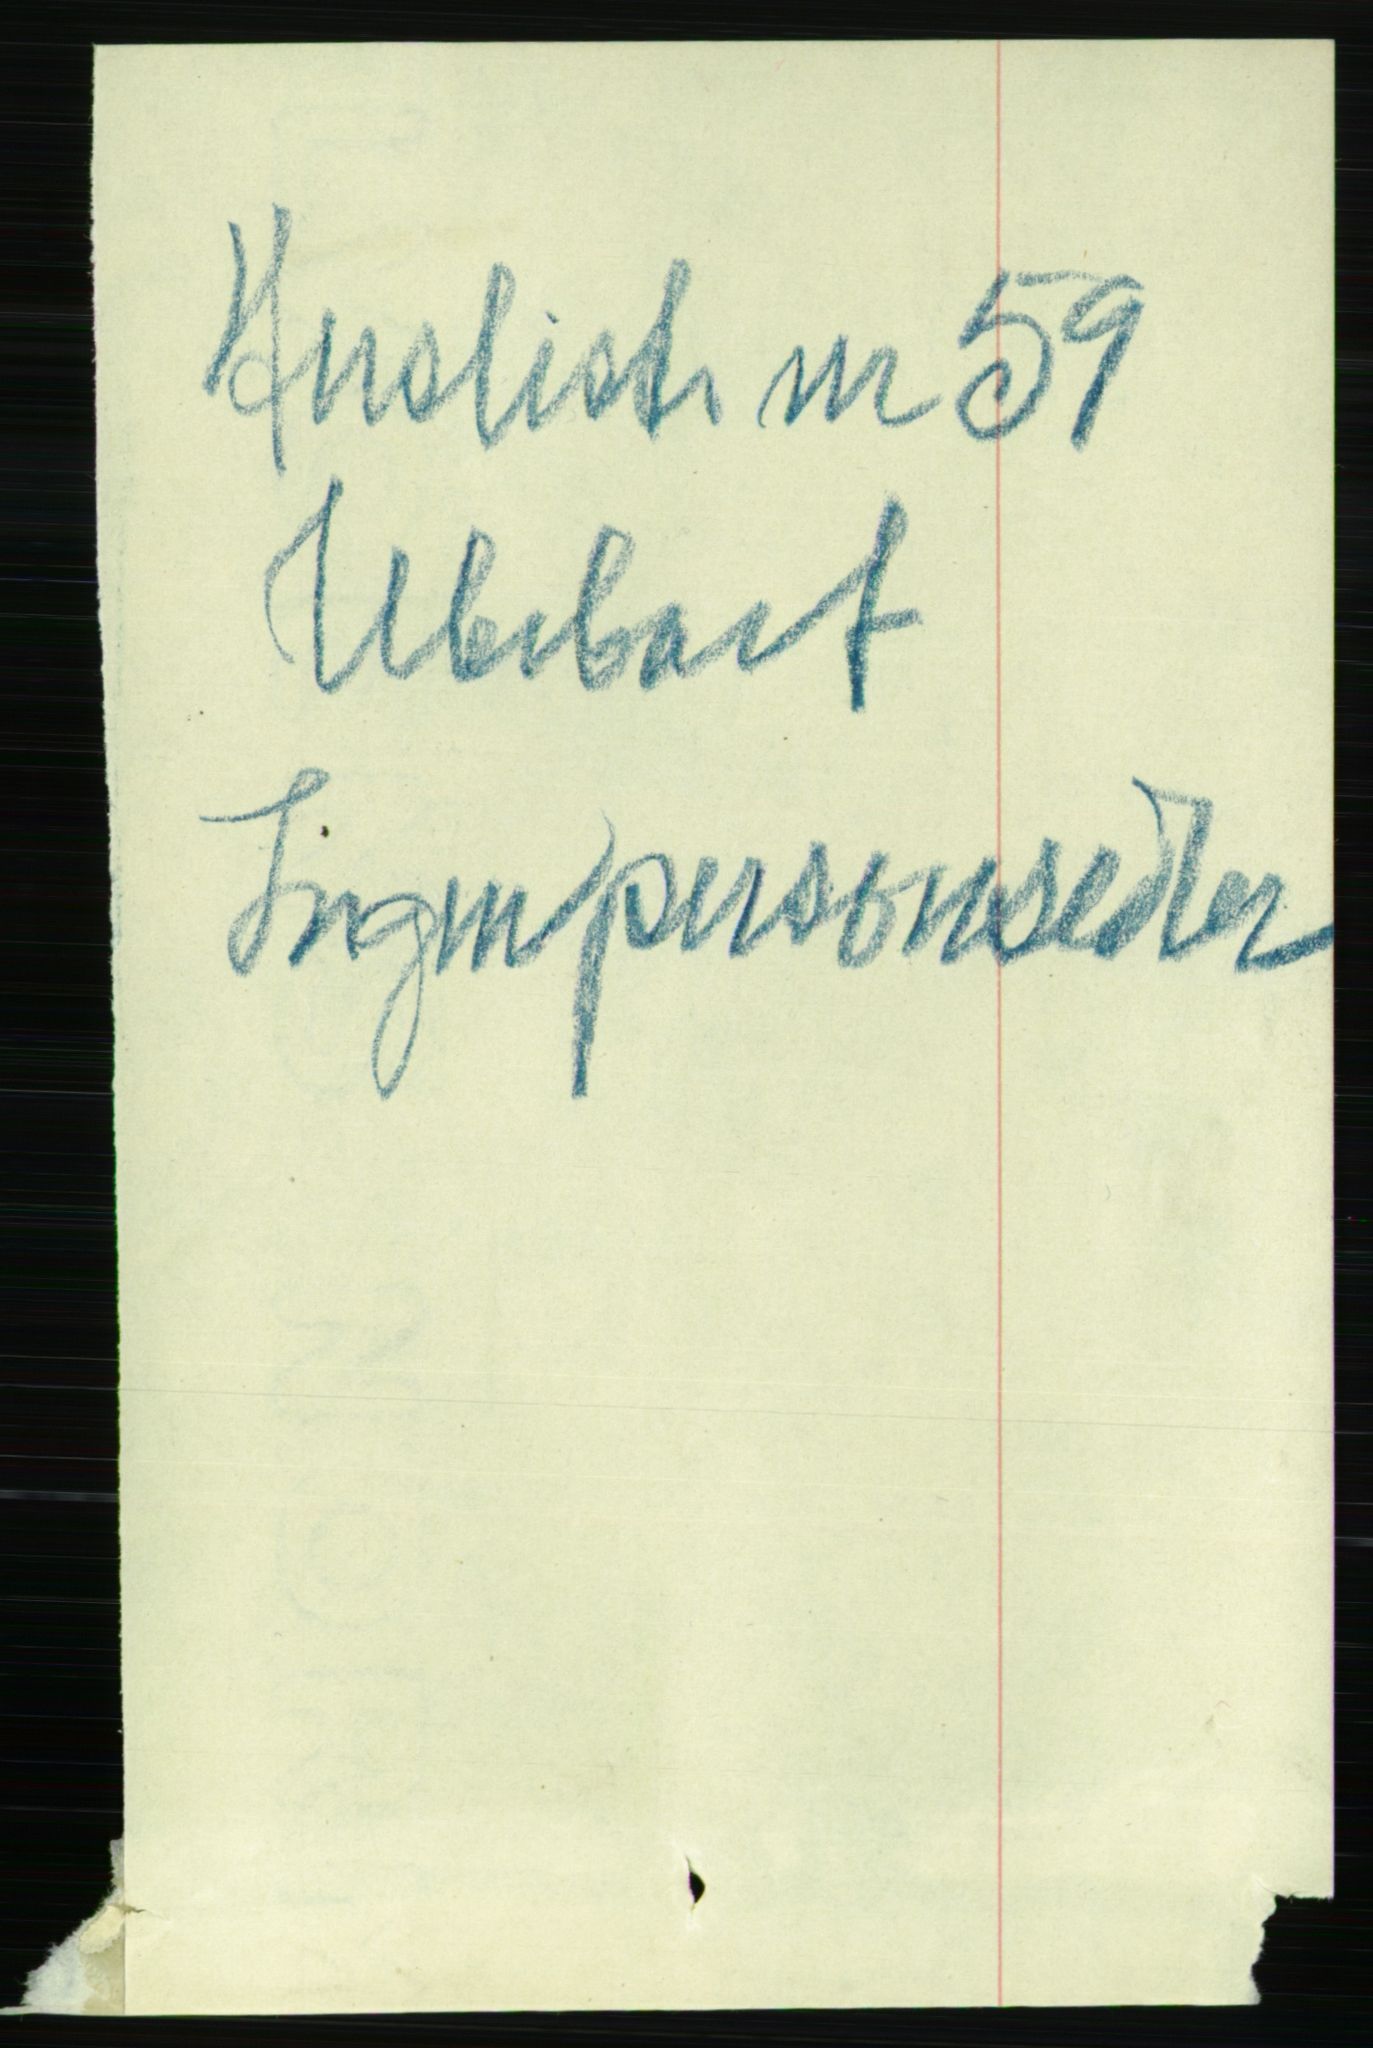 Huslist nr 59
Ubebort
Ingen personsedler